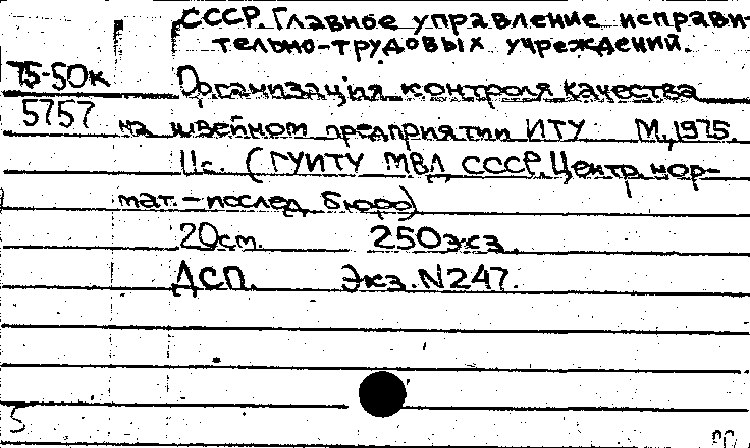 СССР. Главное управление исправи-
тельно-трудовых учреждений.
75-50к
5757
Организация контроля качества
на швейном предприятии ИТУ М., 1975.
11с. (ГУИТУ МВД СССР. Центр. нор-
мат.-исслед. бюро)
20см. 250экз.
ДСП. Экз. N247.
5